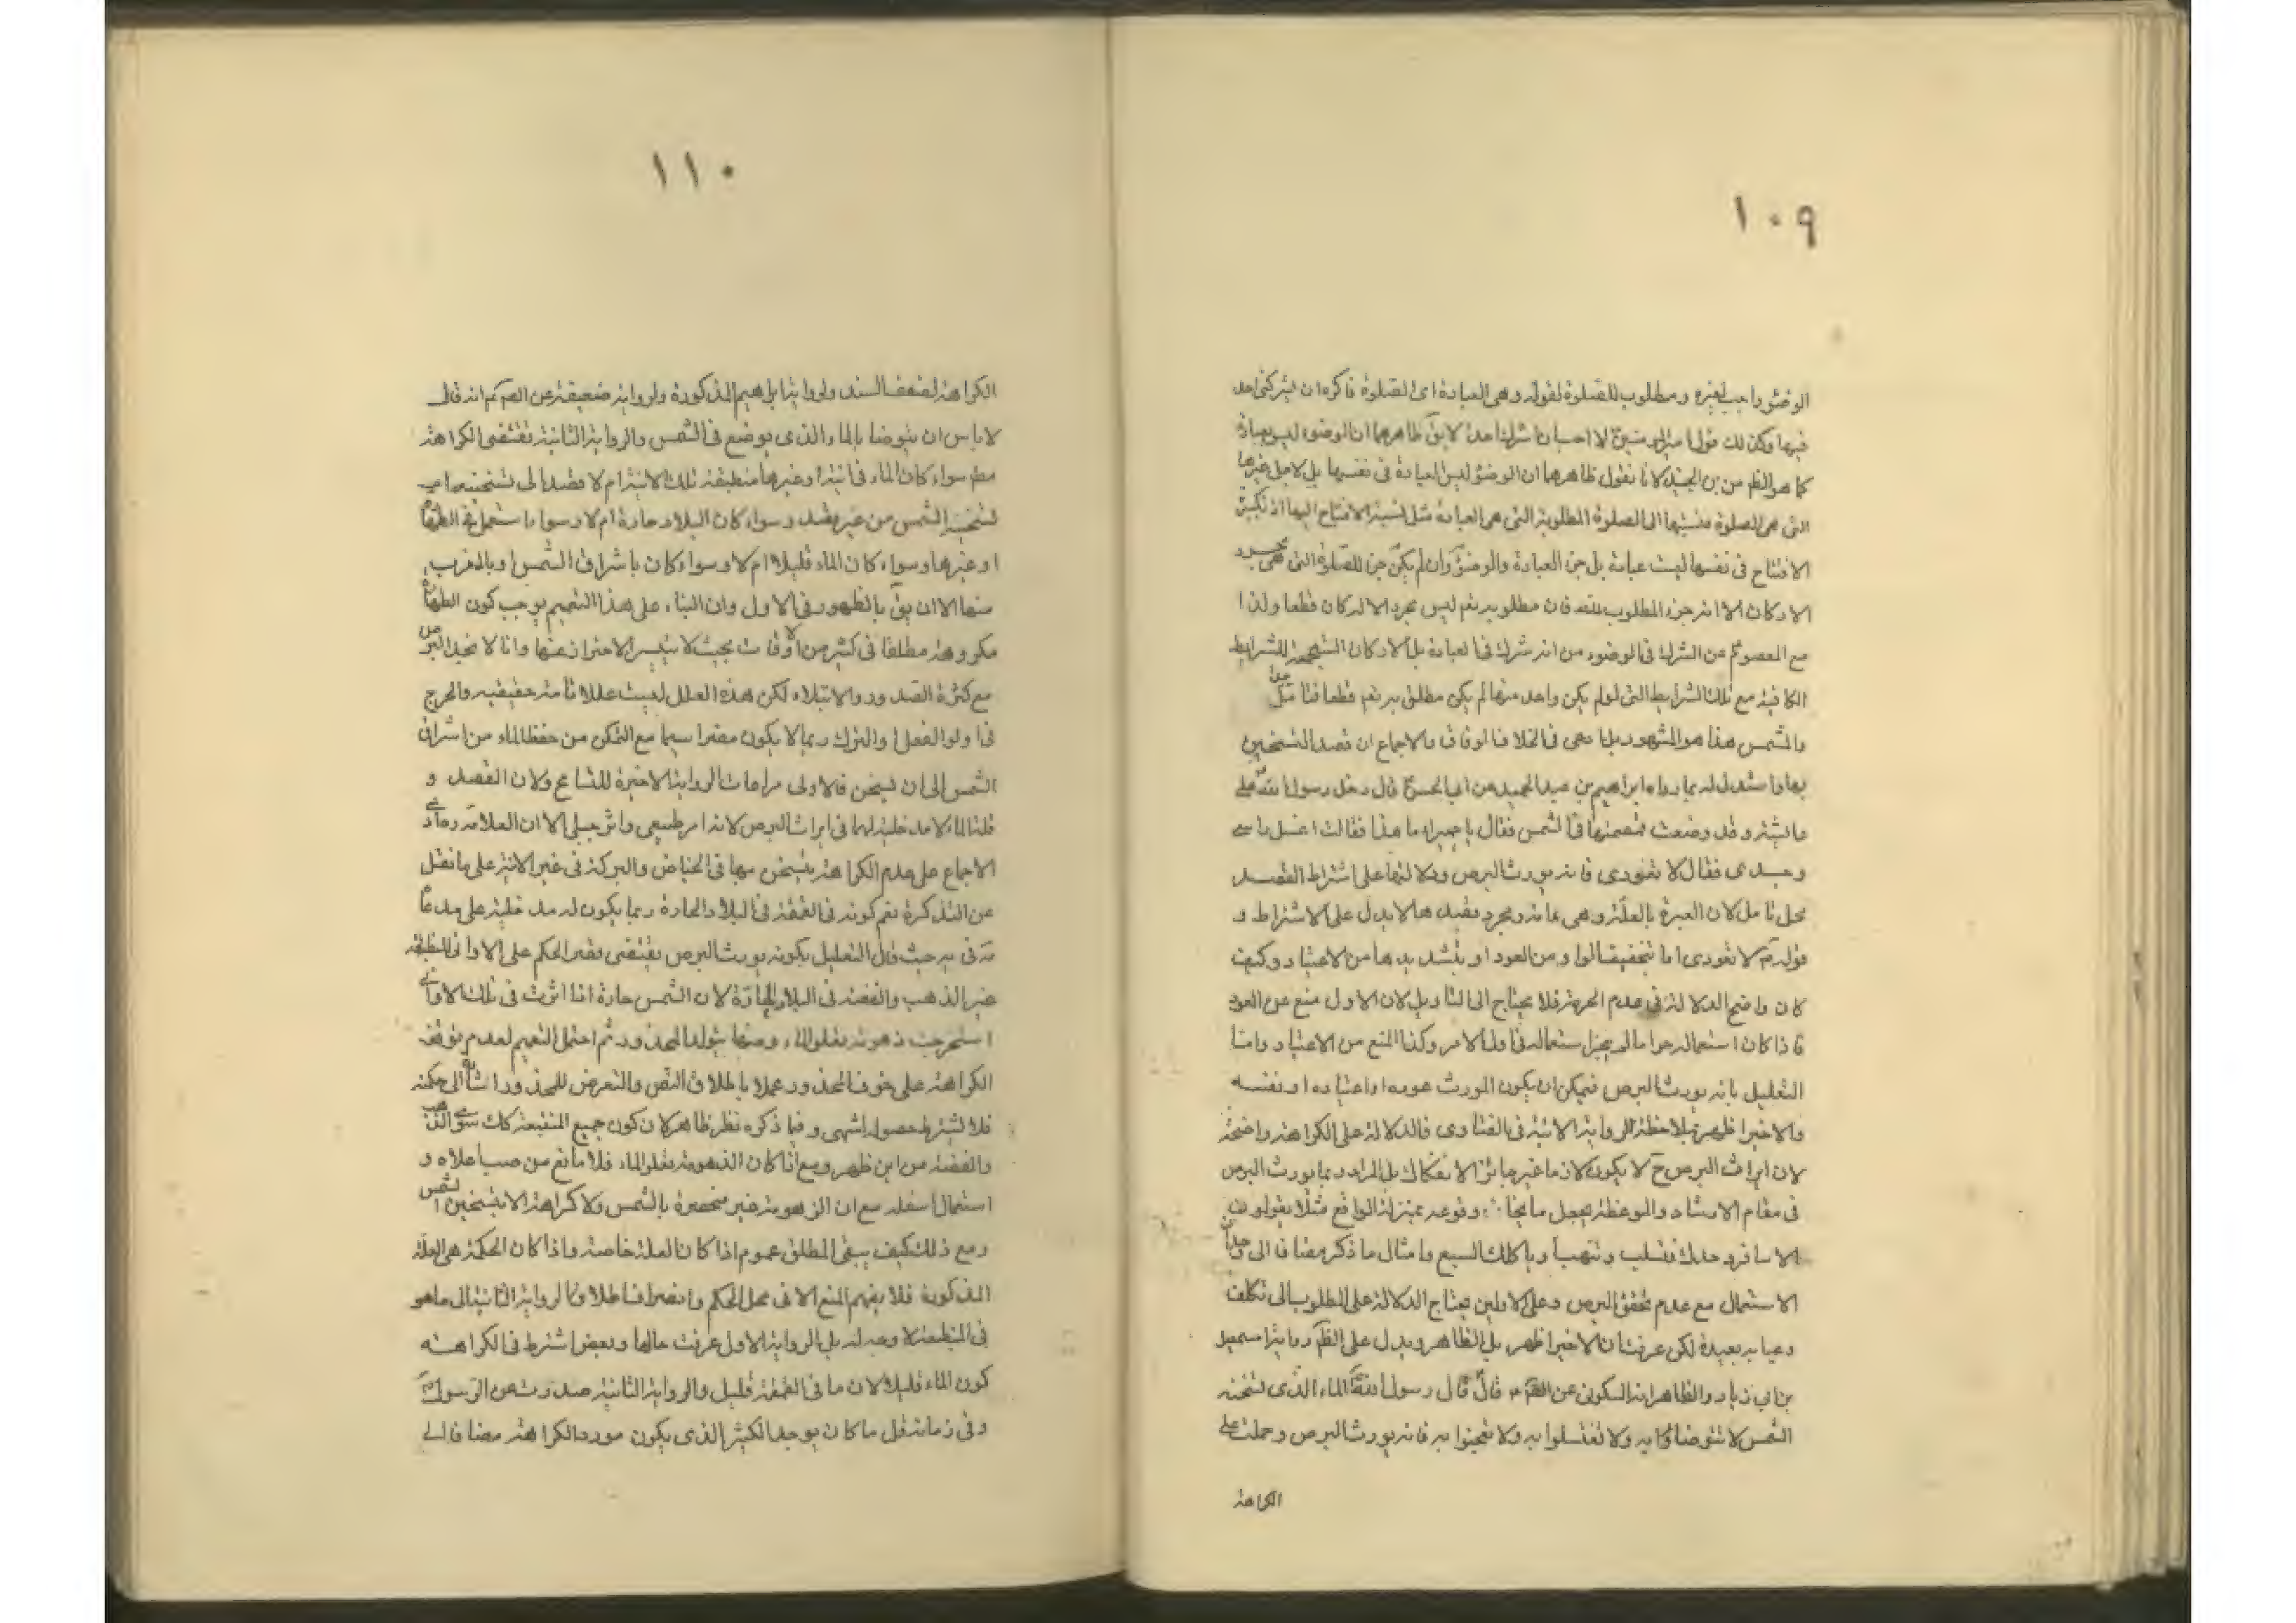 ١٠٩
الوضوء واجب لغيره ومطلوب للصلوة لقوله وهى العبادة اى الصلوة فاكره ان يشركنى احد
فيها وكذلك قول امير المومنين ع لا احب ان اشرك احدا لا يق ظاهرهما ان الوضوء ليس بعبادة
كما هو الظ من بن الجنيد لانا نقول ظاهرهما ان الوضوء ليس العبادة فى نفسها بل لاجل غيرها
التى هى الصلوة فنسبتها الى الصلوة المطلوبة التى هى العبادة مثل نسبة الافتتاح اليها اذ تكبيرة
الافتتاح فى نفسها ليست عبادة بل جزء العبادة والوضوء وان لم يكن جزء للصلوة التى هى مجرد
الاركان الا انه جزء المطلوب لله فان مطلوبه تعم ليس مجرد الاركان قطعا ولذا
مع المعصوم ع من الشرك فى الوضوء من انه شرك فى العبادة بل الاركان للشرايط
الكافية مع تلك الشرايط التى لو لم يكن واحد منها لم يكن مطلق به تعم قطعا فتامل
والشمس هذا هو المشهور بل ادعى فى الخلاف الوفاق والاجماع ان قصد التسخين
بها واستدل له بما رواه ابراهيم بن عبد الحميد عن ابى الحسن ع قال دخل رسول الله ص على
عايشة وقد وضعت قمقمتها فى الشمس فقال يا حميراء ما هذا فقالت اغسل راسى
وجسدى فقال لا تعودى فانه يورث البرص ودلالتها على اشتراط القصد
محل تامل لان العبرة بالعلة وهى عامة ومجرد قصدها لا يدل على الاشتراط و
قوله ع لا تعودى اما بتخفيف الواو من العود او بتشديدها من الاعتياد وكيف
كان واضح الدلالة فى عدم الحرمة فلا يحتاج الى التاويل لان الاول منع عن العود
فاذا كان استعماله حراما لم يجز استعماله فى اول الامر وكذا المنع من الاعتياد واما
التعليل بانه يورث البرص فيمكن ان يكون المورث عوده او اعتياده او نفسه
والاخير اظهر بملاحظة الرواية الاتية فى الفتاوى فالدلالة على الكراهة واضحة
لان ايراث البرص ح لا يكون لازما غير جائز الانفكاك بل المراد ربما يورث البرص
فى مقام الارشاد والموعظة يجعل ما وقوعه بمنزلة الواقع مثلا يقولون
لا تسافر وحدك فتسلب وتنهب او ياكلك السبع وامثال ما ذكر مضافا الى
الاستعمال مع عدم تحقق البرص وعلى الاولين يحتاج الدلالة على المطلوب الى تكلف
وعناية بعيدة لكن عرفت ان الاخير اظهر بل الظاهر ويدل على الظ رواية اسمعيل
بن ابى زياد والظاهر انه السكونى عن الصم ع قال قال رسول الله ص الماء الذى تسخنه
الشمس لا تتوضاؤا به ولا تغتسلوا به ولا تعجنوا به فانه يورث البرص وحملت على
الكراهة
١١٠
الكراهة لضعف السند ولرواية ابراهيم المذكورة ولرواية ضعيفة عن الصم ع انه قال
لا باس ان يتوضا بالماء الذى يوضع فى الشمس والرواية الثانية تقتضى الكراهة
مطم سواء كان الماء فى انية او غيرها منطبقة تلك الانية ام لا قصد الى تسخينه ام
تسخنه الشمس من غير قصد وسواء كان البلاد حارة ام لا وسواء استعمل فى الطهارة
او غيرها وسواء كان الماء قليلا ام لا وسواء كان باشراق الشمس او بالقرب
منها الا ان يق بالظهور فى الاول وان البناء على هذا التعميم يوجب كون الطهارة
مكروهة مطلقا فى كثير من الاوقات بحيث لا يتيسر الاحتراز عنها وانا لا نجد البرص
مع كثرة الصدور والابتلاء لكن هذه العلل ليست عللا تامة حقيقيه والحرج
فى اولو الفعل او الترك ربما لا يكون مضرا سيما مع التمكن من حفظ الماء من اشراق
الشمس الى ان يسخن فالاولى مراعات الرواية الاخيرة للتسامح ولان القصد و
قلة الماء لا مدخلية لهما فى ايراث البرص لانه امر طبيعى واثر جبلى الا ان العلامة ره ادعى
الاجماع على عدم الكراهة بتسخن مياه فى الحياض والبركة فى غير الانية على ما نقل
عن التذكرة نعم كونه فى القمقمة فى البلاد الحارة ربما يكون له مدخلية على مدعا
قه فى به حيث قال التعليل بكونه يورث البرص يقتضى قصر الحكم على الاوانى المنطبقة
غير الذهب والفضة فى البلاد الحارة لان الشمس حارة اذا اثرت فى تلك الاوانى
استخرجت زهومة تعلو الماء ومنها يتولد المحذور ثم احتمل التعميم لعدم توقف
الكراهة على خوف المحذور عملا باطلاق النص والتعرض للمحذور اشارة الى حكمة
فلا يشترط حصولها انتهى وفيما ذكره نظر ظاهر لان كون جميع المنطبعة كك سوى الذهب
والفضة من اين ظهر ومع اذا كان الزهومة تعلو الماء فلا مانع من صب اعلاه و
استعمال اسفله مع ان الزهومة غير منحصرة بالشمس ولا كراهة الا بتسخين الشمس
ومع ذلك كيف يبقى المطلق عموم اذا كان العلة خاصة واذا كان الحكمة هى العلة
المذكورة فلا يفهم المنع الا فى محل الحكم وانصراف اطلاق الرواية الثانية الى ما هو
فى المنطبعة لا وجه له بل الرواية الاول عرفت حالها وبعض اشترط فى الكراهة
كون الماء قليلا لان ما فى القمقمة قليل والرواية الثانية صدرت عن الرسول ص
وفى زمانه قل ما كان يوجد الكثير الذى يكون مورد الكراهة مضافا الى